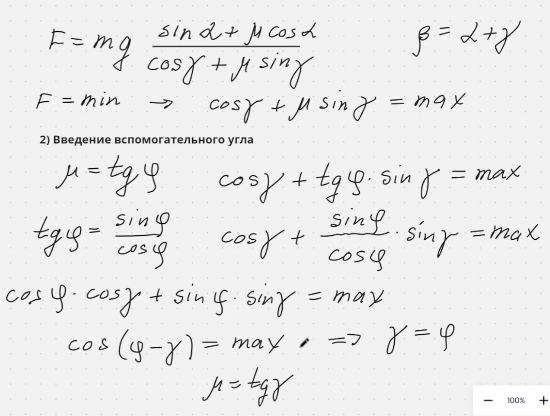 F = mg (sin α + μ cos α)/(cos γ + μ sin γ) β = α + γ
F = min → cos γ + μ sin γ = max
2) Введение вспомогательного угла
μ = tg φ cos γ + tg φ · sin γ = max
tg φ = sin φ/cos φ cos γ + sin φ/cos φ · sin γ = max
cos φ · cos γ + sin φ · sin γ = max
cos (φ – γ) = max ⇒ γ = φ
μ = tg γ
100%